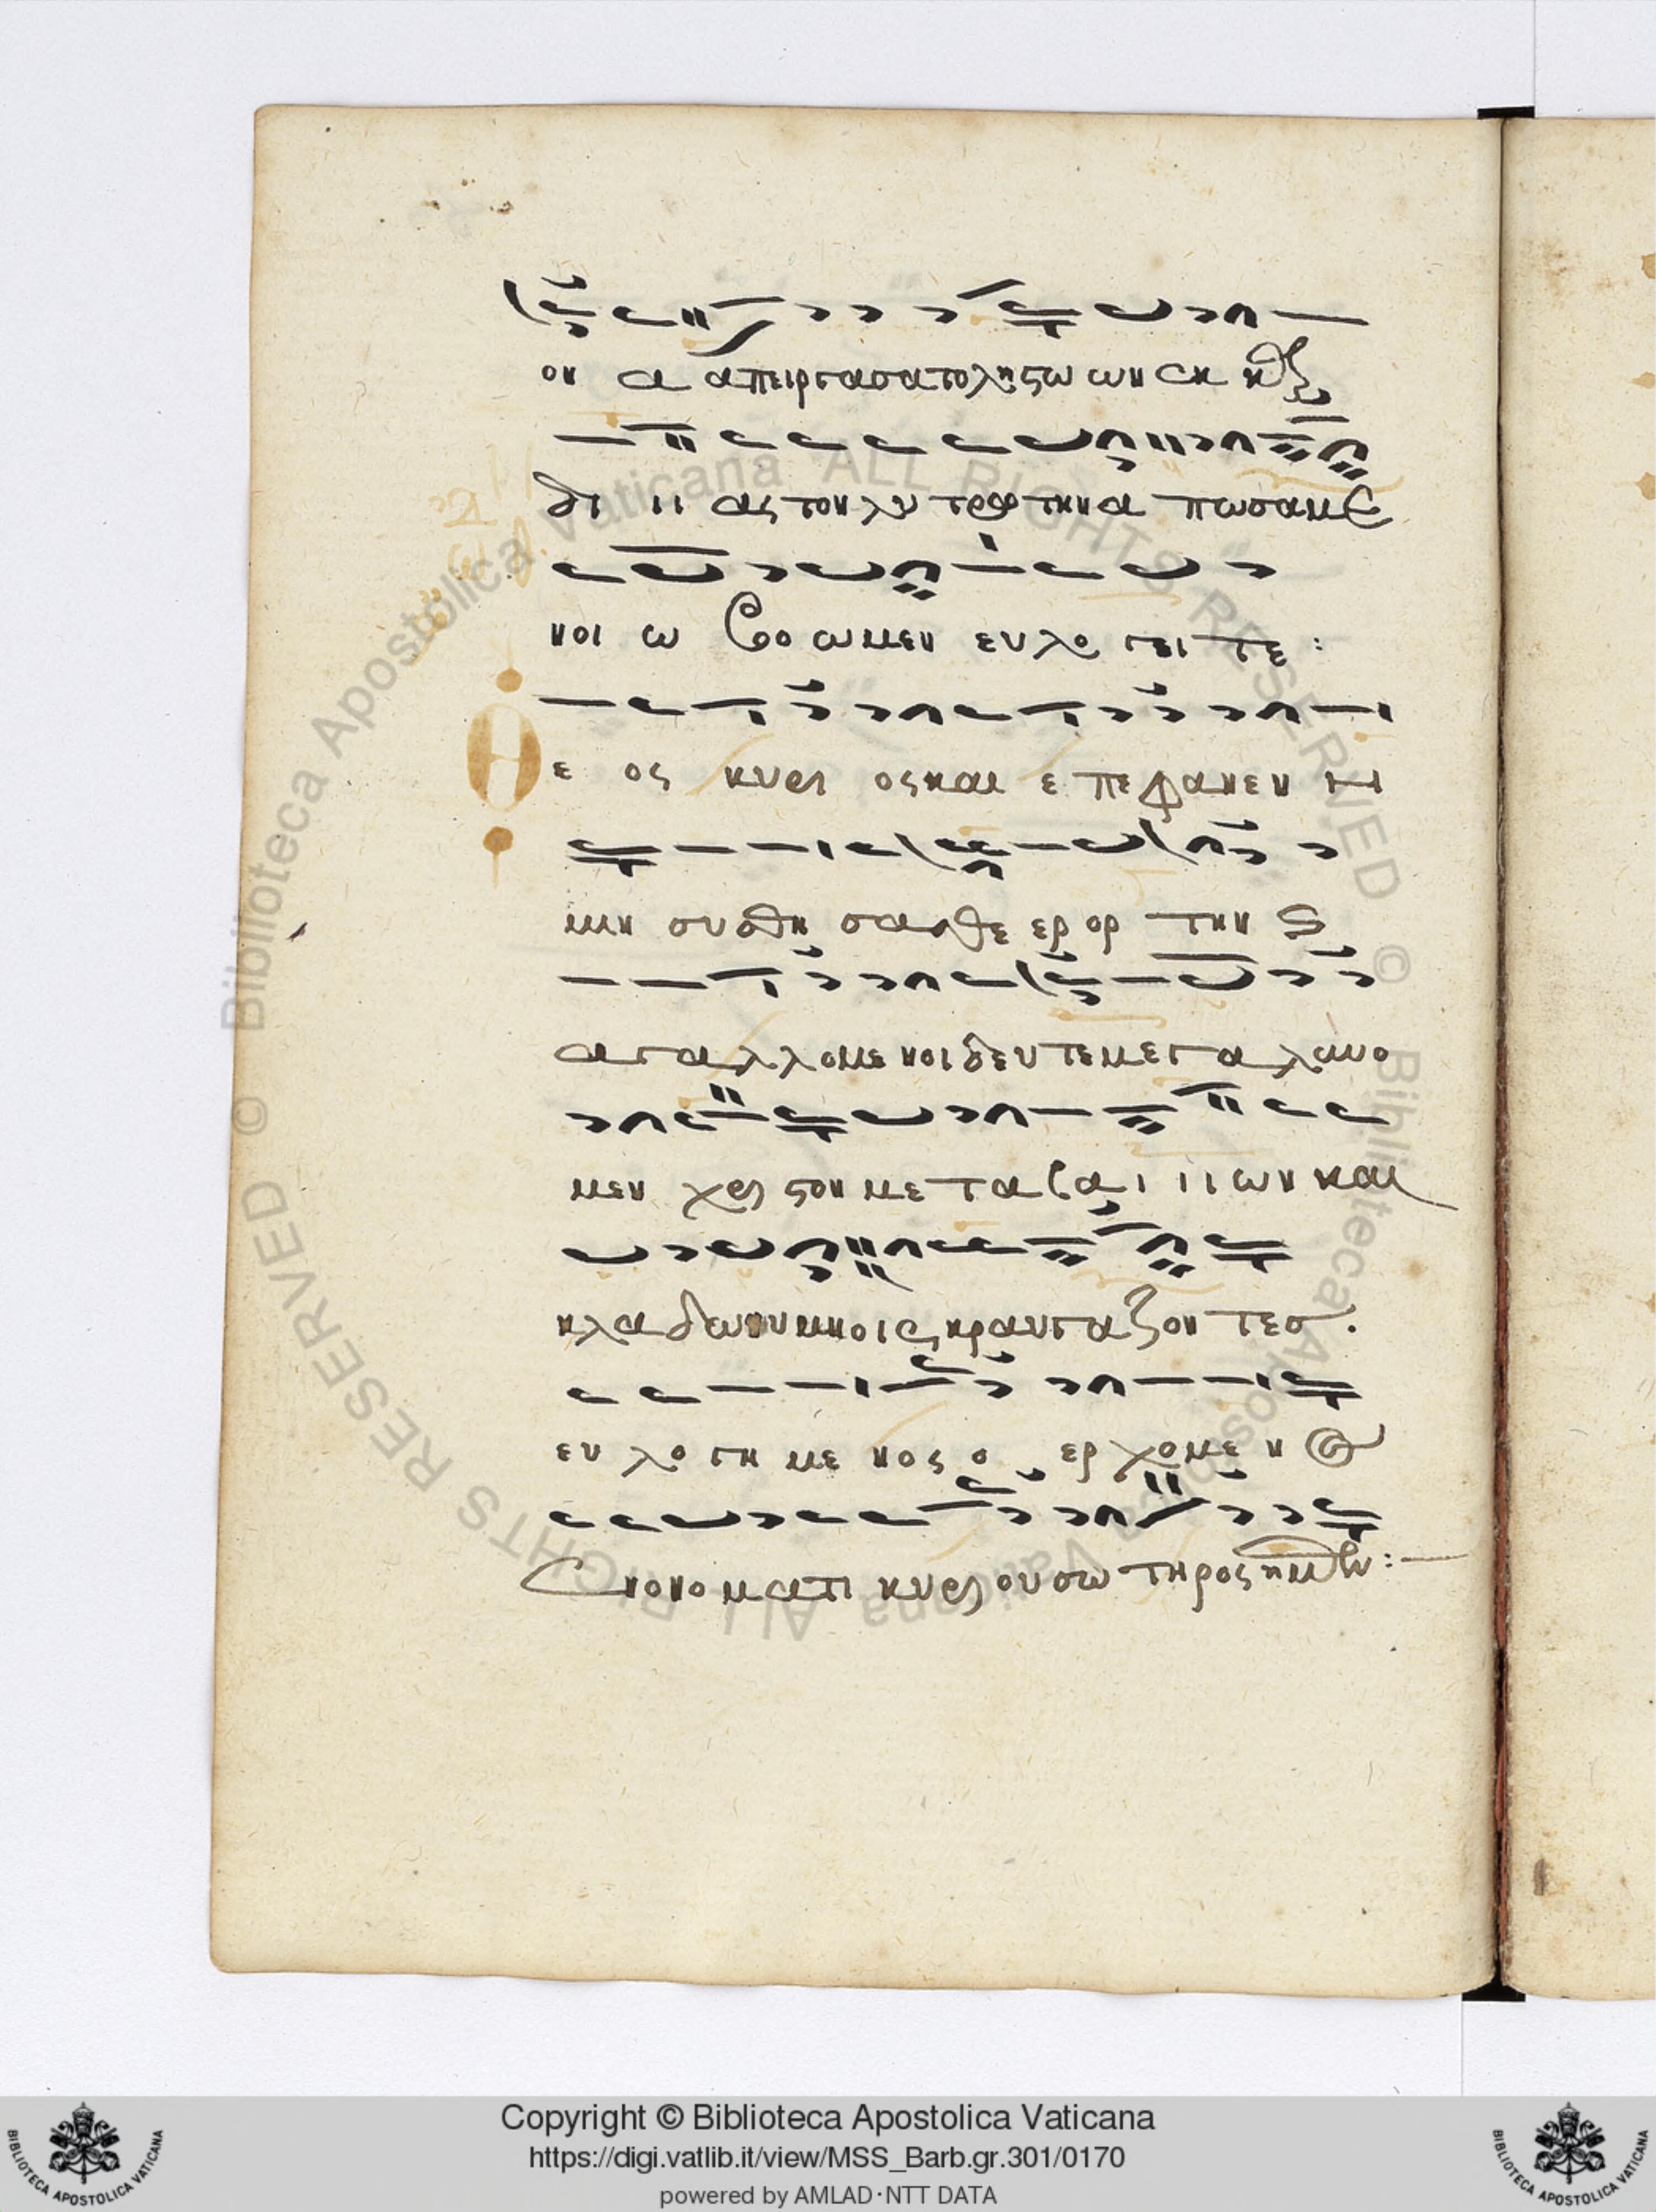 ον α απειργασατο λῃστων εν καρ
δι ι ας τον λυ τρω την α πωσαμε
νοι ω βο ωμεν ευλο γει τε :
Θε ος κυρι ος και ε πεφανεν η
μιν συστη σασθε ε ορ την κ
αγαλλομενοι δευτε μεγαλυνο
μεν χρι στον με τα βα ι ι ων και
κλαδων υμνοις κραυγαζοντες .
ευ λο γη με νος ο ερ χομε νος
εν ονο ματι κυριου σω τηρος ημων :
© Biblioteca Apostolica Vaticana ALL RIGHTS RESERVED © Biblioteca Apostolica Vaticana ALL RIGHTS RESERVED
Copyright © Biblioteca Apostolica Vaticana
https://digi.vatlib.it/view/MSS_Barb.gr.301/0170
powered by AMLAD·NTT DATA
BIBLIOTECA APOSTOLICA VATICANA
BIBLIOTECA APOSTOLICA VATICANA